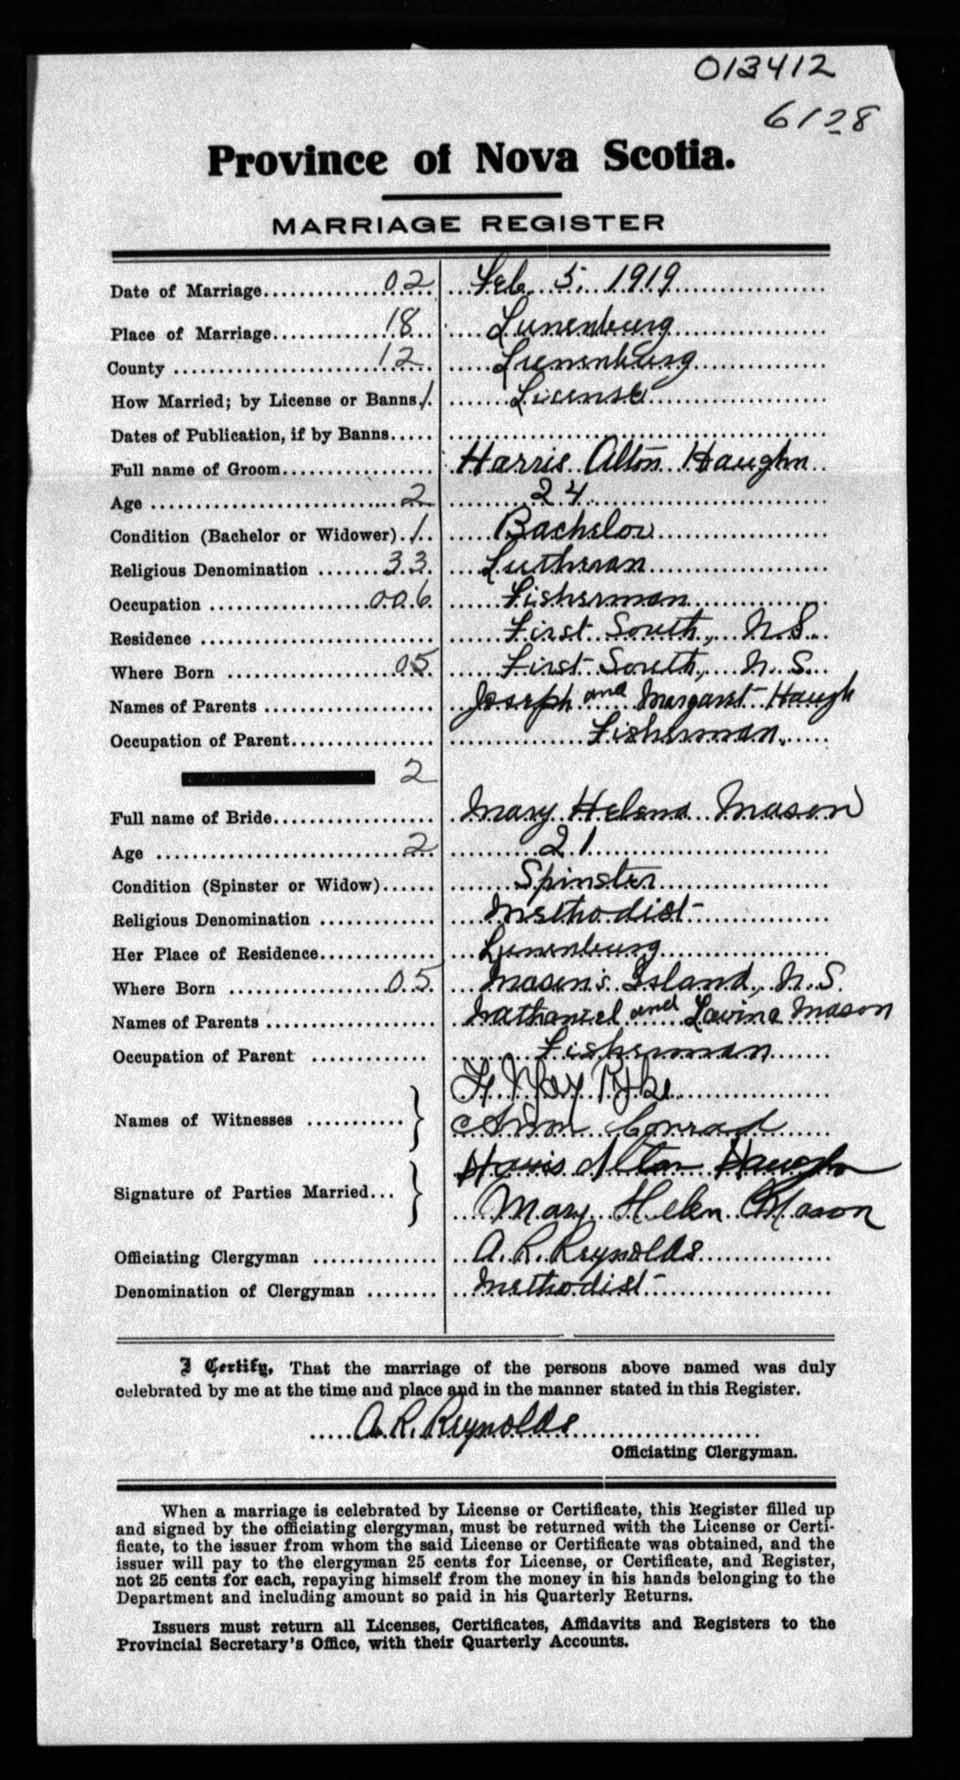 013412
6128
Province of Nova Scotia.
MARRIAGE REGISTER
Date of Marriage 02 Feb. 5. 1919
Place of Marriage 18 Lunenburg
County 12 Lunenburg
How Married; by License or Banns 1 License
Dates of Publication, if by Banns
Full name of Groom Harris Alton Haughn
Age 2 24
Condition (Bachelor or Widower) 1 Bachelor
Religious Denomination 33 Lutheran
Occupation 006 Fisherman
Residence First South, N.S.
Where Born 05 First South, N.S.
Names of Parents Joseph and Margaret Haugh
Occupation of Parent Fisherman.
2
Full name of Bride Mary Helena Mason
Age 2 21
Condition (Spinster or Widow) Spinster
Religious Denomination Methodist
Her Place of Residence Lunenburg
Where Born 05 Mason's Island, N.S.
Names of Parents Nathaniel and Lavina Mason
Occupation of Parent Fisherman
Names of Witnesses
Conrad
Signature of Parties Married Harris Alton Haughn
Mary Helen Mason
Officiating Clergyman A. R. Reynolds
Denomination of Clergyman Methodist
I Certify, That the marriage of the persons above named was duly
celebrated by me at the time and place and in the manner stated in this Register.
A. R. Reynolds
Officiating Clergyman.
When a marriage is celebrated by License or Certificate, this Register filled up
and signed by the officiating clergyman, must be returned with the License or Certi-
ficate, to the issuer from whom the said License or Certificate was obtained, and the
issuer will pay to the clergyman 25 cents for License, or Certificate, and Register,
not 25 cents for each, repaying himself from the money in his hands belonging to the
Department and including amount so paid in his Quarterly Returns.
Issuers must return all Licenses, Certificates, Affidavits and Registers to the
Provincial Secretary's Office, with their Quarterly Accounts.